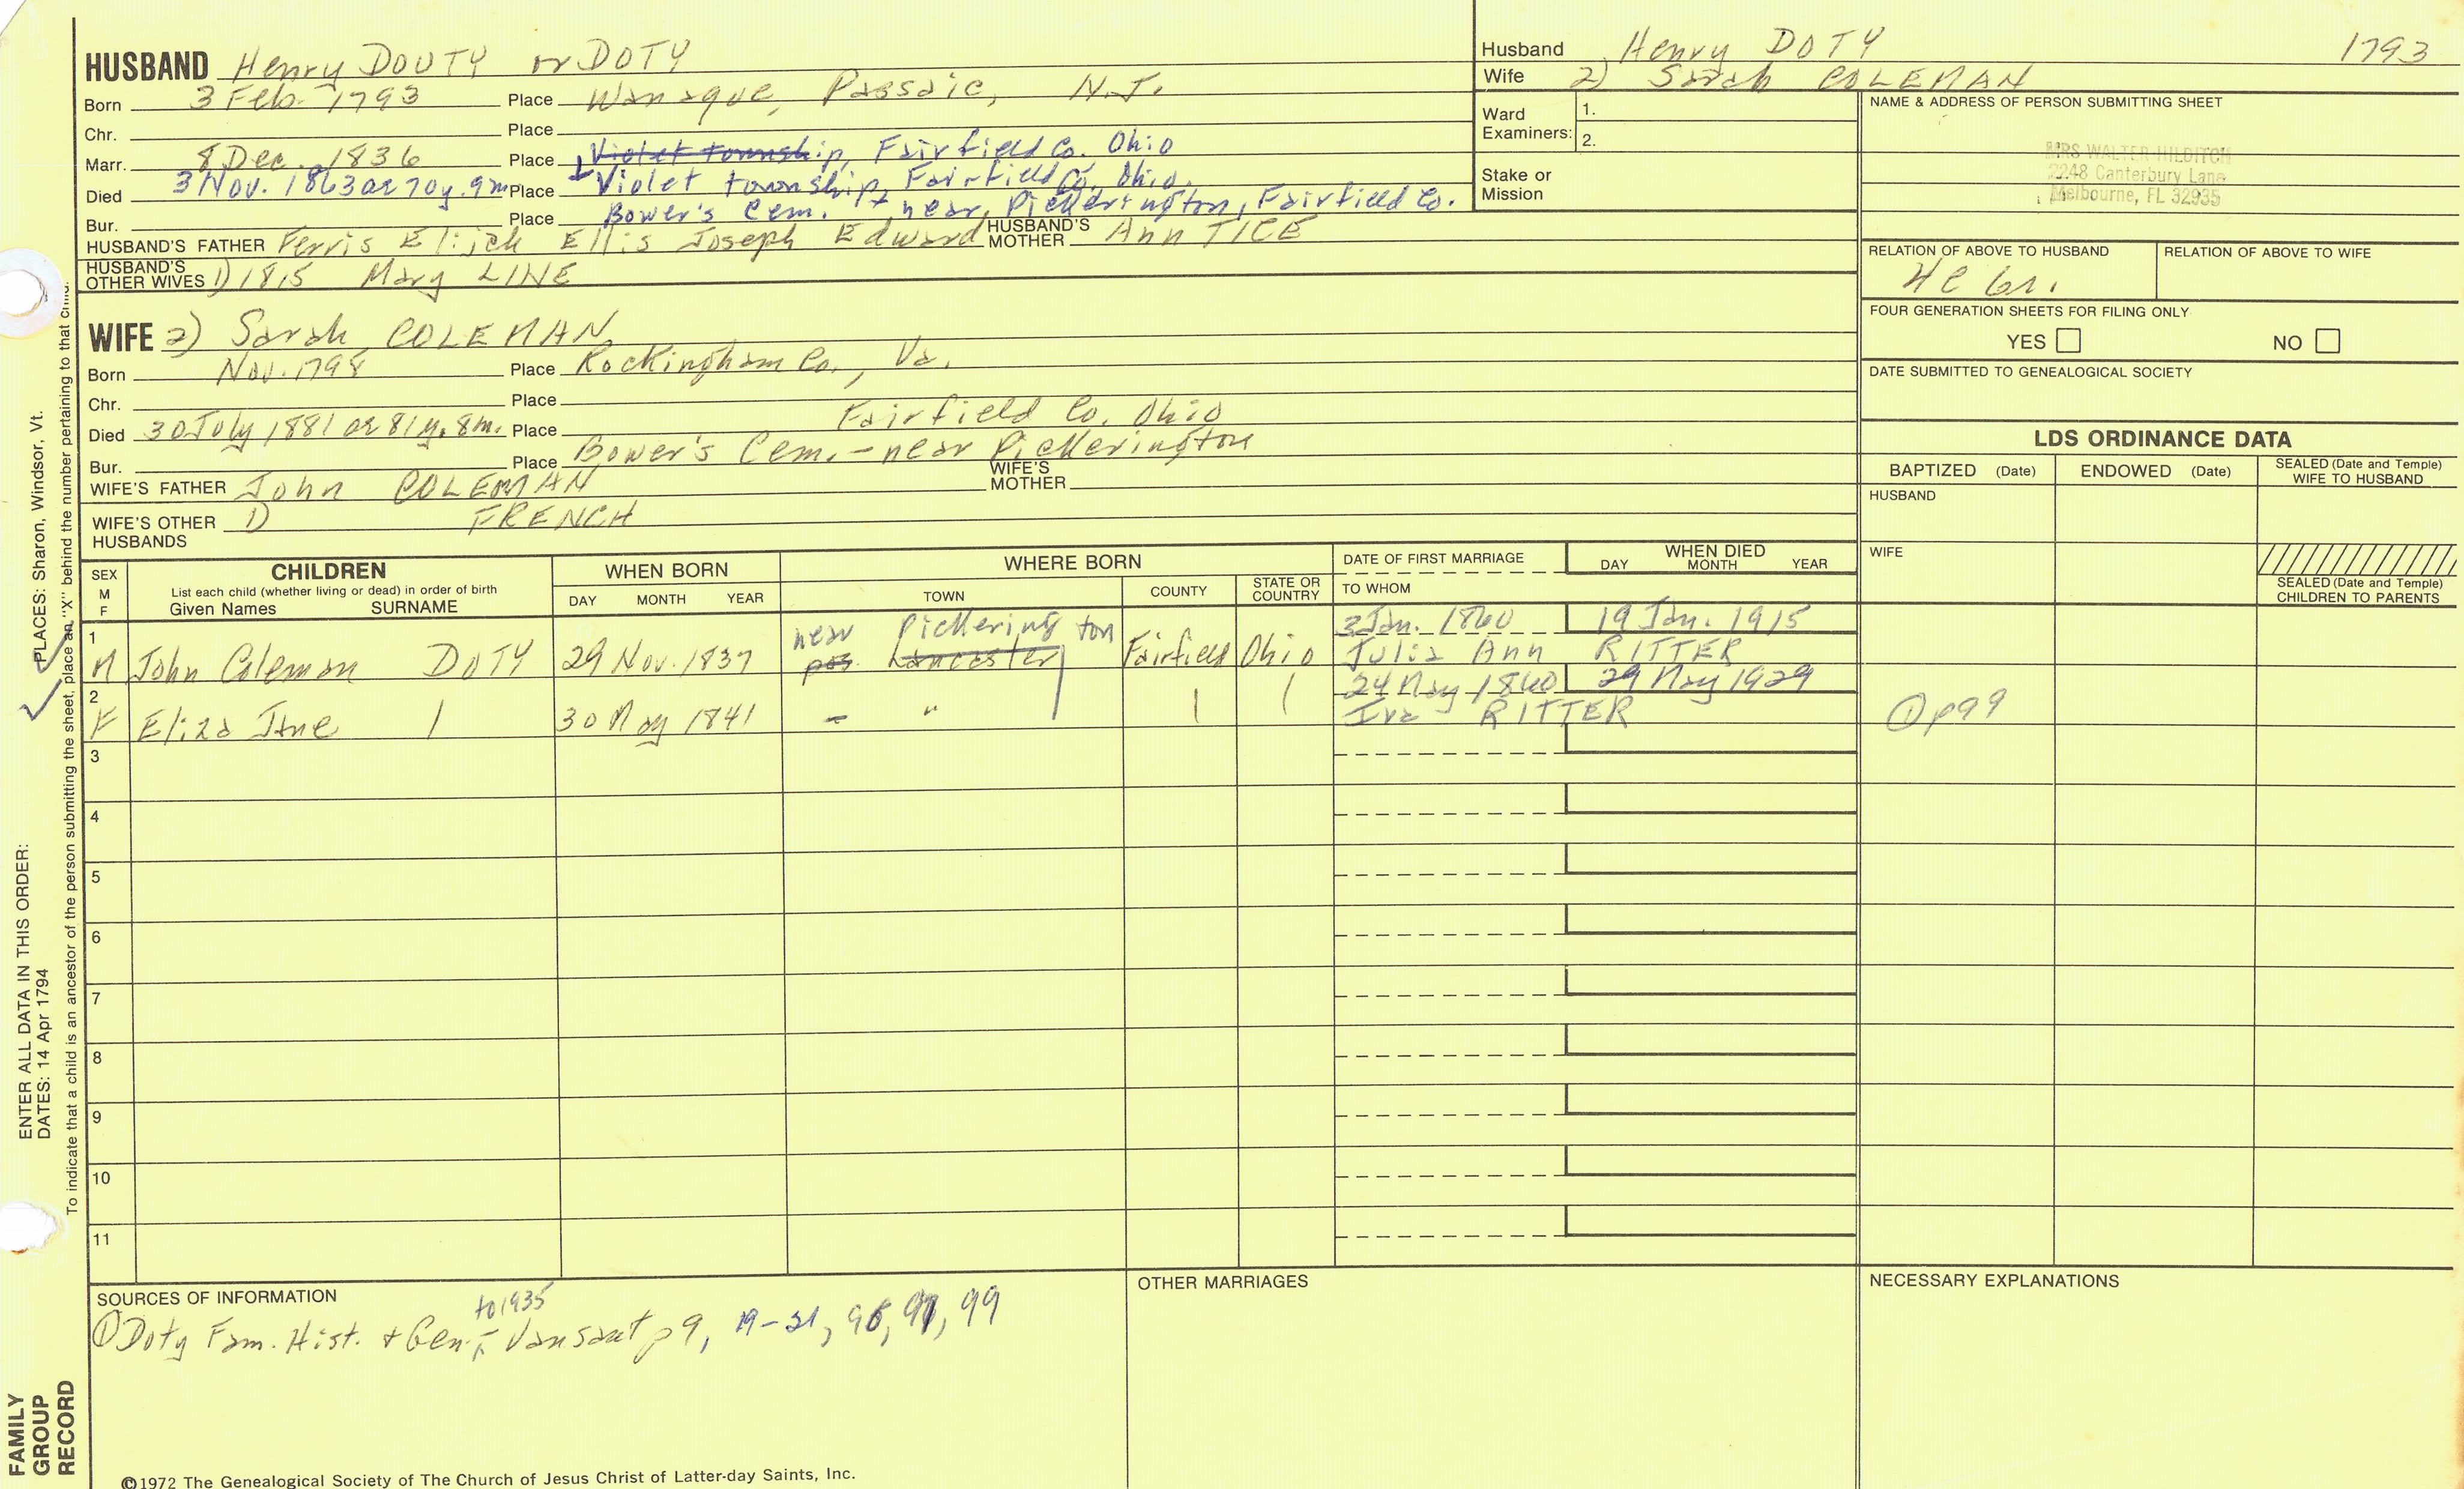 HUSBAND Henry DOUTY or DOTY
Born 3 Feb. 1793 Place Wanaque, Passaic, N.J.
Chr. Place
Marr. 8 Dec. 1836 Place Violet township, Fairfield Co. Ohio
Died 3 Nov. 1863 ae 70y. 9m Place Violet township, Fairfield Co, Ohio.
Bur. Place Bower's Cem. near Pickerington, Fairfield Co.
HUSBAND'S FATHER Ferris Elijah Ellis Joseph Edward HUSBAND'S MOTHER Ann TICE
HUSBAND'S OTHER WIVES 1) 1815 Mary LINE
Husband Henry DOTY 1793
Wife 2) Sarah COLEMAN
Ward Examiners: 1.
2.
Stake or Mission
NAME & ADDRESS OF PERSON SUBMITTING SHEET
MRS WALTER HILDITCH
2248 Canterbury Lane
Melbourne, FL 32935
RELATION OF ABOVE TO HUSBAND RELATION OF ABOVE TO WIFE
FOUR GENERATION SHEETS FOR FILING ONLY
YES NO
DATE SUBMITTED TO GENEALOGICAL SOCIETY
WIFE 2) Sarah COLEMAN
Born Nov. 1798 Place Rockingham Co., Va.
Chr. Place
Died 30 July 1881 ae 81y. 8m. Place Fairfield Co. Ohio
Bur. Place Bower's Cem. - near Pickerington
WIFE'S FATHER John COLEMAN WIFE'S MOTHER
WIFE'S OTHER HUSBANDS 1) FRENCH
LDS ORDINANCE DATA
BAPTIZED (Date) ENDOWED (Date) SEALED (Date and Temple) WIFE TO HUSBAND
HUSBAND
WIFE
SEALED (Date and Temple) CHILDREN TO PARENTS
SEX M F
CHILDREN
List each child (whether living or dead) in order of birth
Given Names SURNAME
WHEN BORN
DAY MONTH YEAR
WHERE BORN
TOWN COUNTY STATE OR COUNTRY
DATE OF FIRST MARRIAGE
TO WHOM
WHEN DIED
DAY MONTH YEAR
1 M John Coleman DOTY 29 Nov. 1837 near Pickerington pos. Lancaster Fairfield Ohio 3 Jan. 1860 19 Jan. 1915
Julia Ann RITTER
2 F Eliza Jane 30 May 1841 - " 24 May 1860 29 May 1929
Ira RITTER
① p99
3
4
5
6
7
8
9
10
11
SOURCES OF INFORMATION
to 1935
① Doty Fam. Hist. + Gen., Vansant p 9, 19-21, 96, 97, 99
OTHER MARRIAGES
NECESSARY EXPLANATIONS
©1972 The Genealogical Society of The Church of Jesus Christ of Latter-day Saints, Inc.
FAMILY GROUP RECORD
ENTER ALL DATA IN THIS ORDER:
DATES: 14 Apr 1794
PLACES: Sharon, Windsor, Vt.
To indicate that a child is an ancestor of the person submitting the sheet, place an "X" behind the number pertaining to that child.